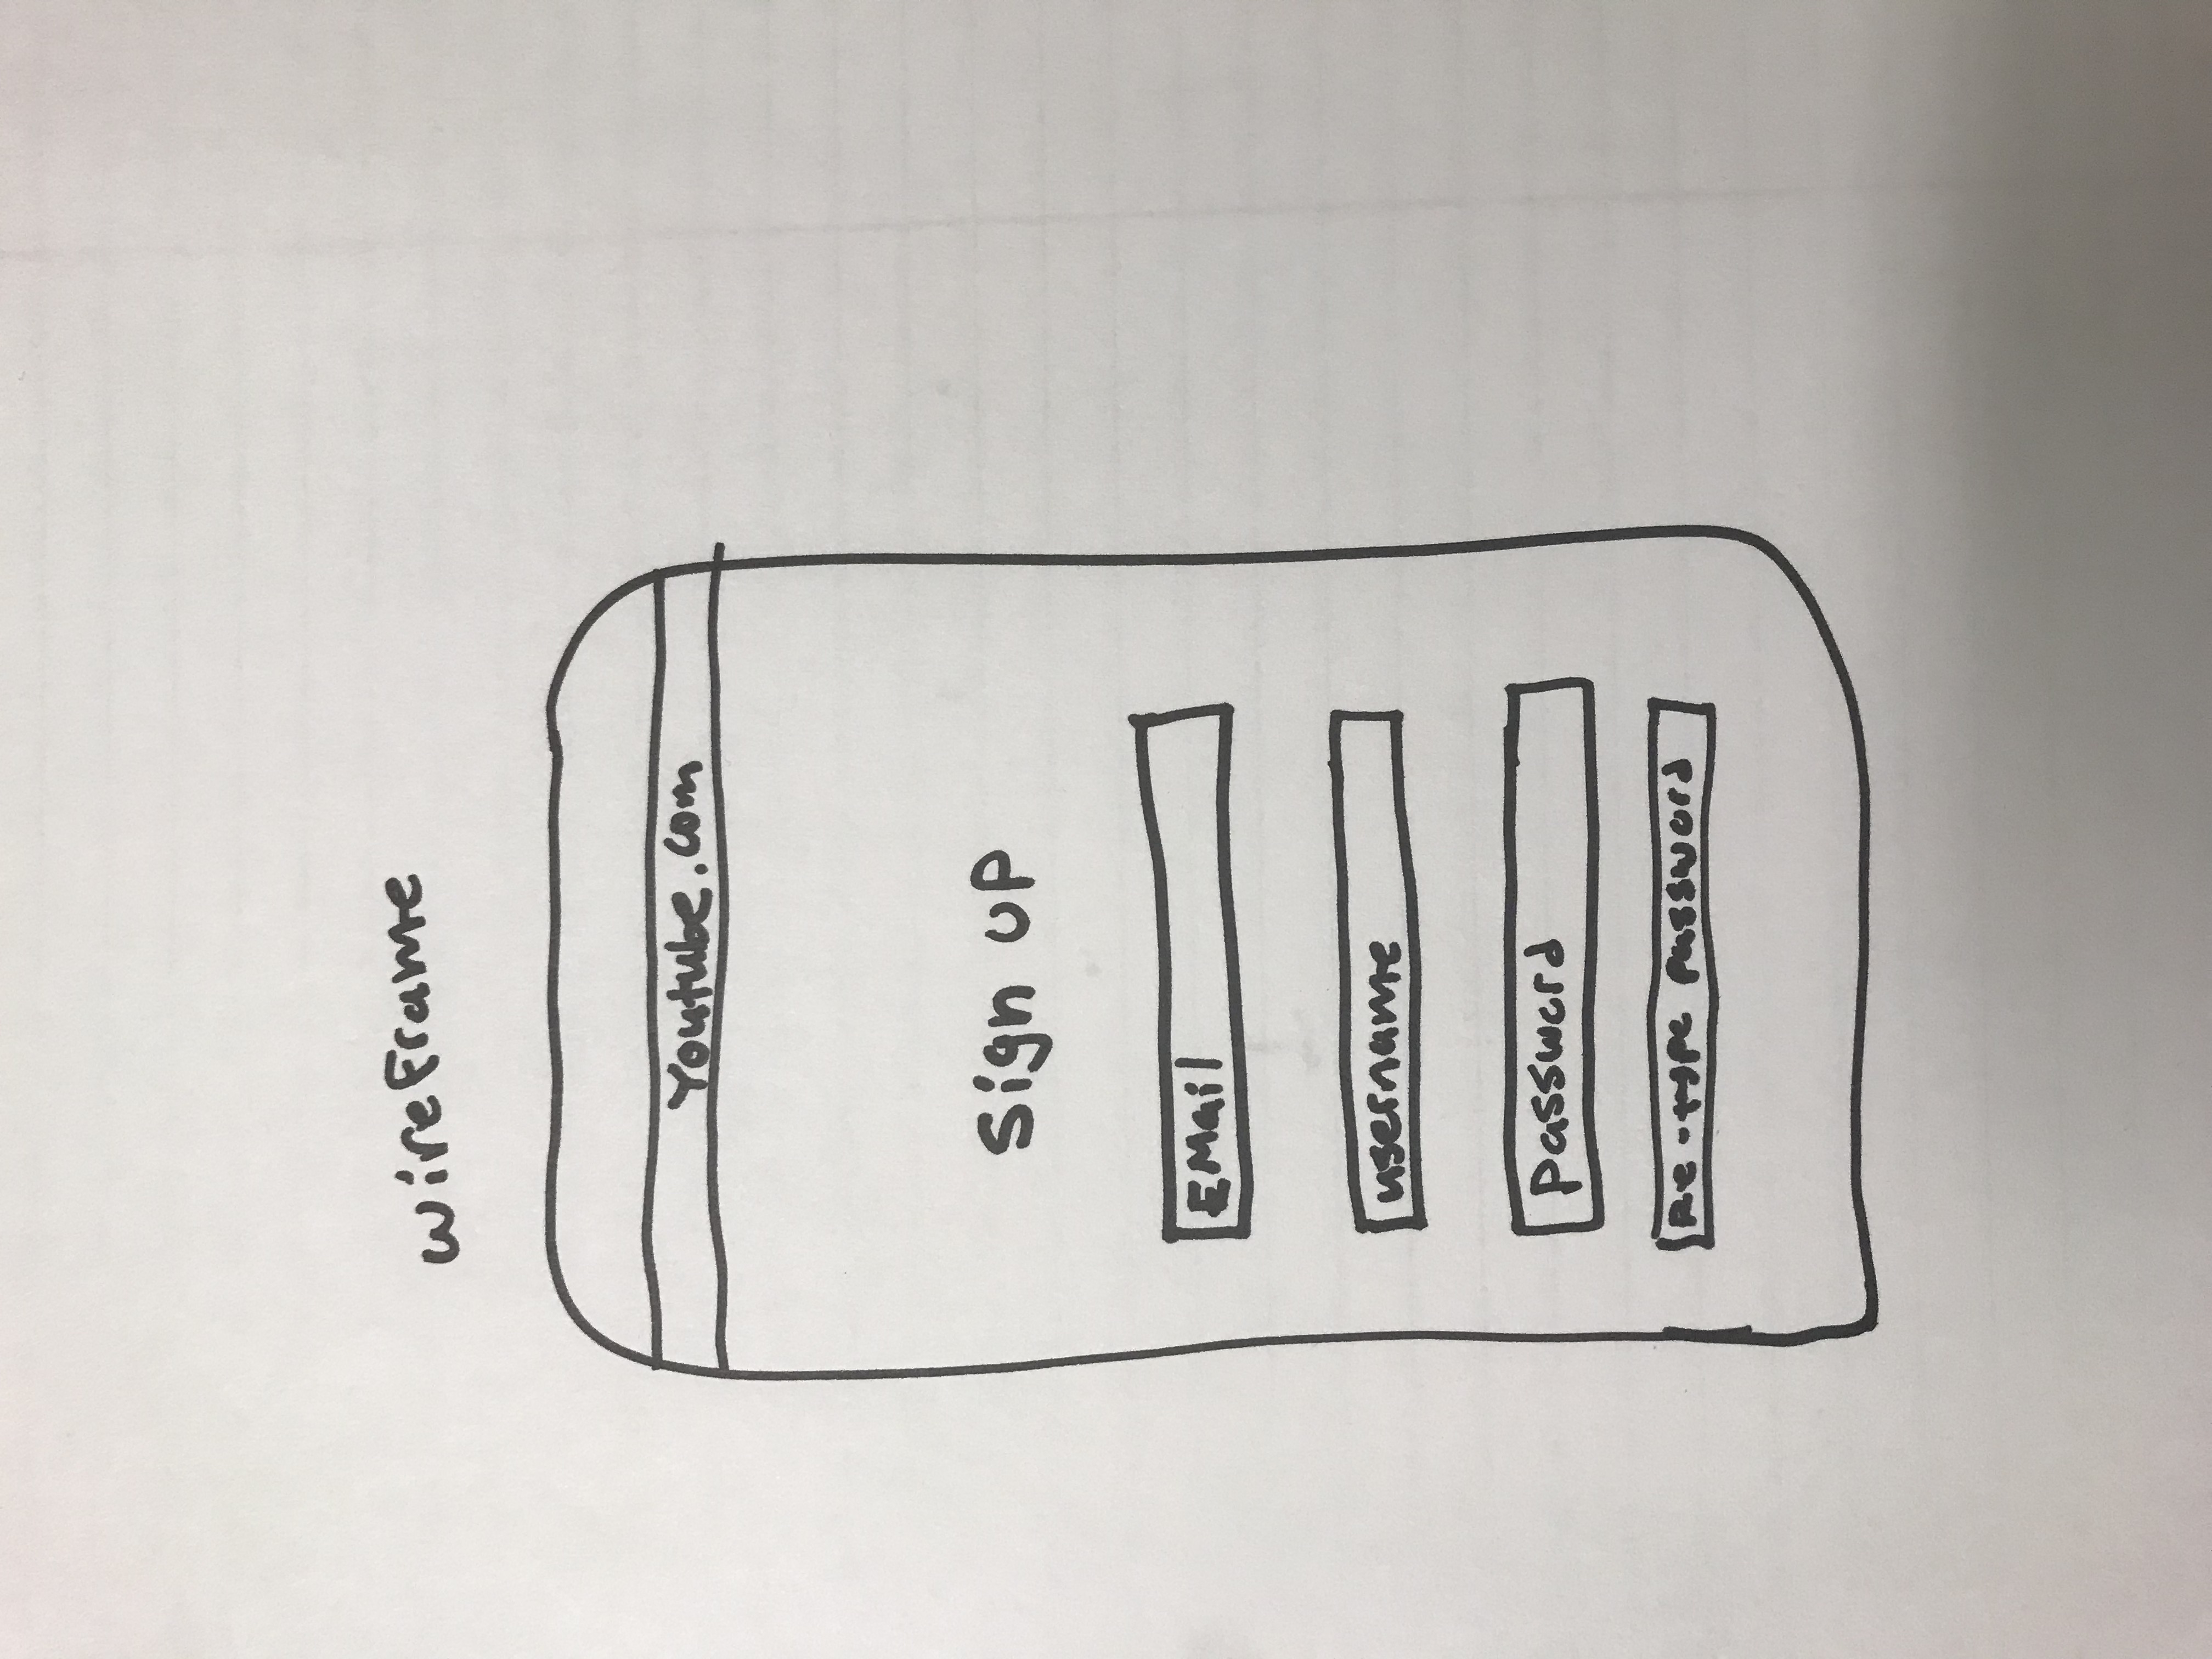 wireframe
Youtube.com
Sign up
EMail
username
password
Re-type password